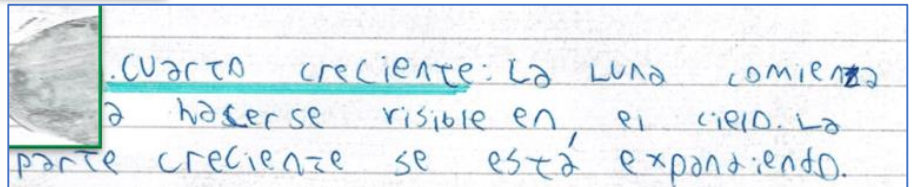 .cuarto creciente: La Luna comienza
a hacerse visible en el cielo. La
parte creciente se está expandiendo.